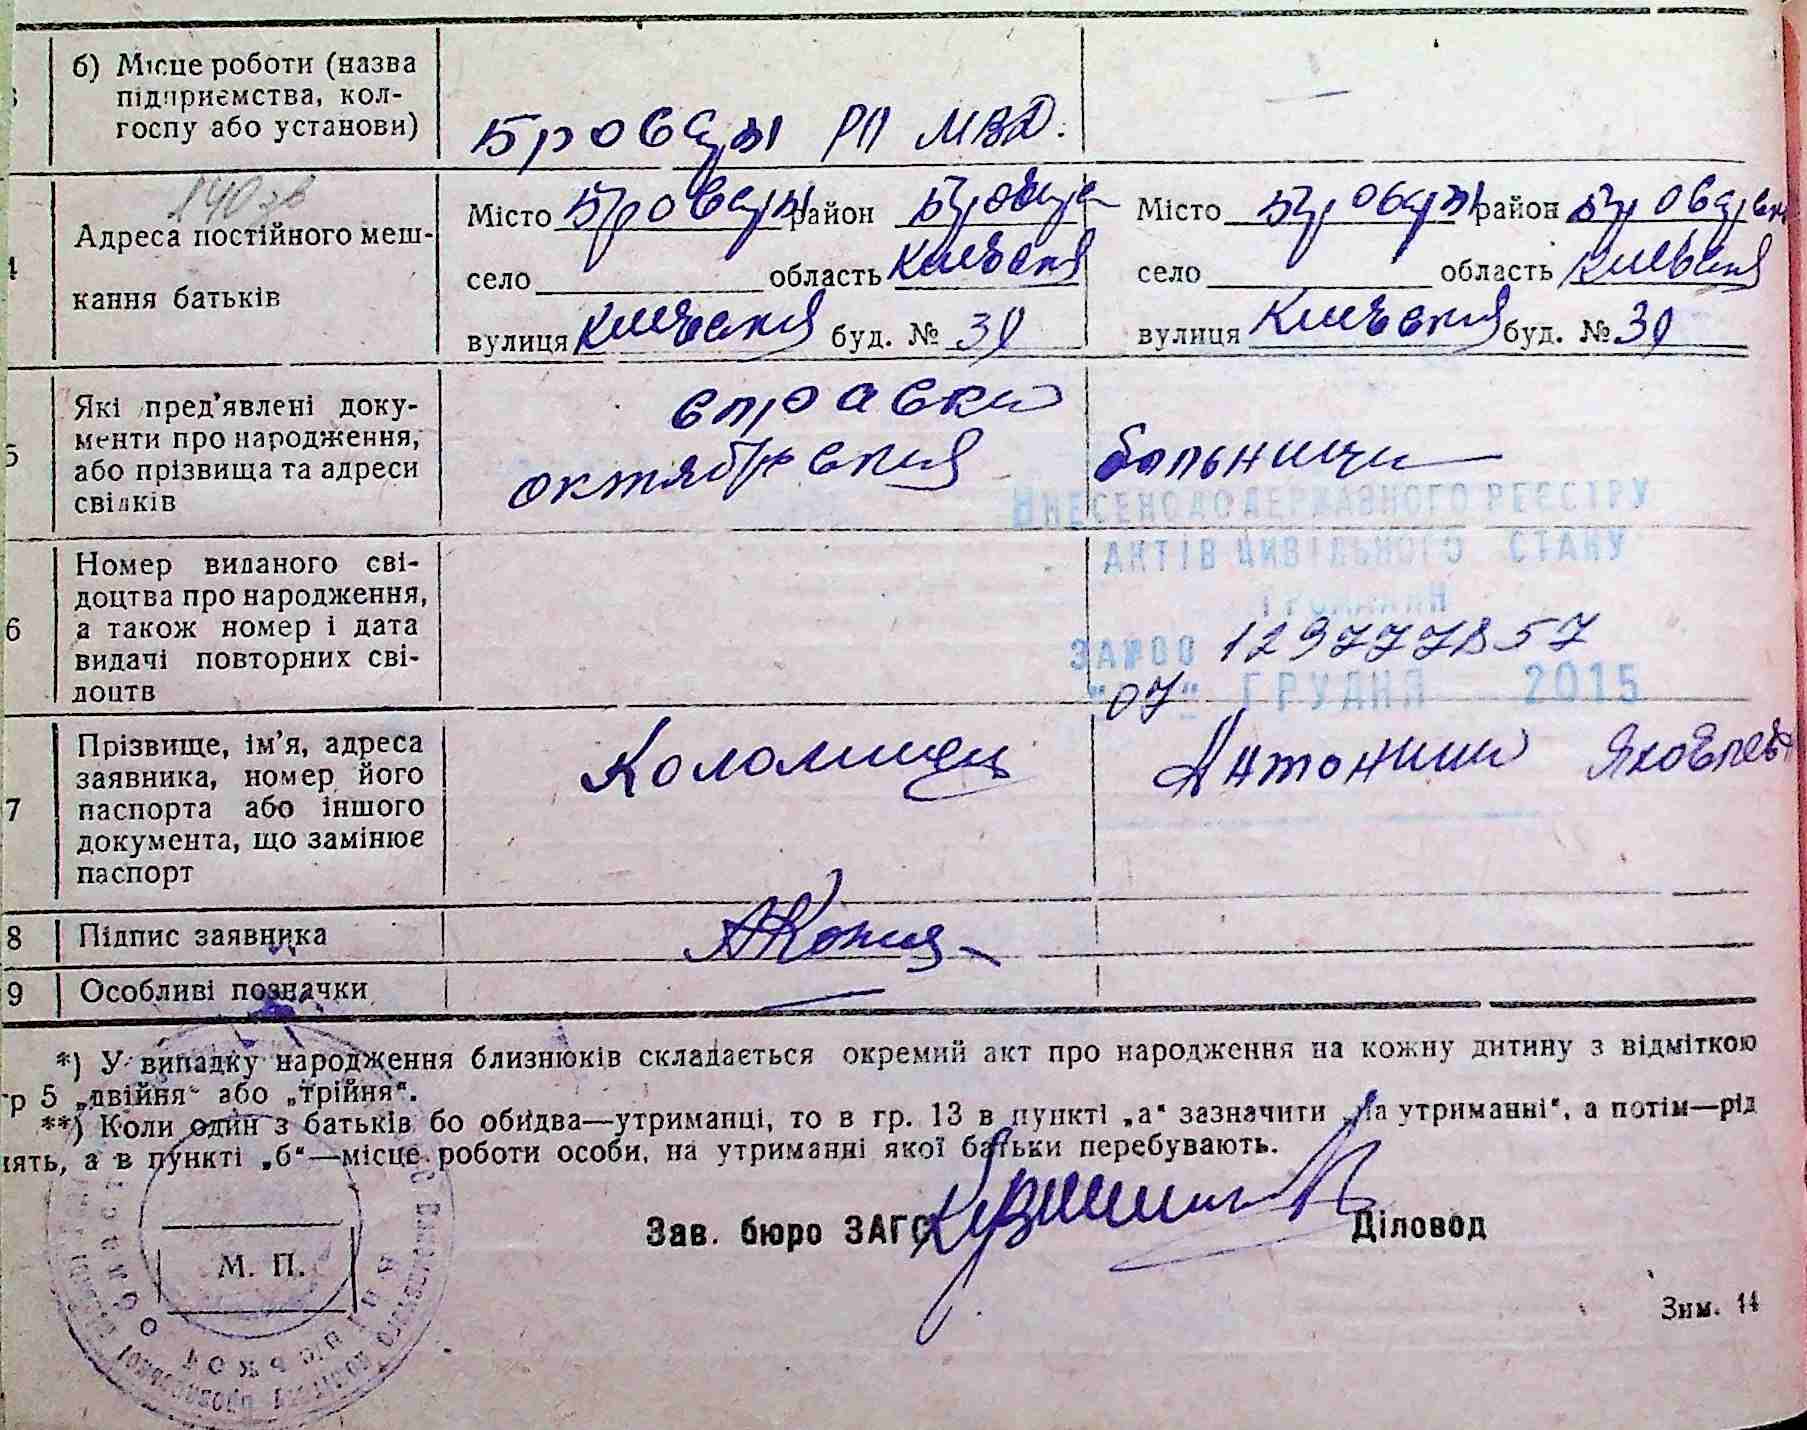 б) Місце роботи (назва
підприємства, кол-
госпу або установи)
Бровары РО МВД. —
Адреса постійного меш-
кання батьків
Місто Бровары район Місто Бровары район
село область Киевская село область Киевская
вулиця Киевская буд. № 39 вулиця Киевская буд. № 39
5 Які пред'явлені доку-
менти про народження,
або прізвища та адреси
свідків
справки
октябрская больницы
ВНЕСЕНО ДО ДЕРЖАВНОГО РЕЄСТРУ
АКТІВ ЦИВІЛЬНОГО СТАНУ
ГРОМАДЯН
6 Номер виданого сві-
доцтва про народження,
а також номер і дата
видачі повторних сві-
доцтв
ЗА №00 129777857
"07" ГРУДНЯ 2015
7 Прізвище, ім'я, адреса
заявника, номер його
паспорта або іншого
документа, що замінює
паспорт
Коломиец Антонина
8 Підпис заявника
9 Особливі позначки —
*) У випадку народження близнюків складається окремий акт про народження на кожну дитину з відміткою
гр 5 „двійня“ або „трійня“.
**) Коли один з батьків бо обидва—утриманці, то в гр. 13 в пункті „а“ зазначити „на утриманні“, а потім—рід
нять, а в пункті „б“—місце роботи особи, на утриманні якої батьки перебувають.
Зав. бюро ЗАГС Діловод
М. П.
Зим. 14